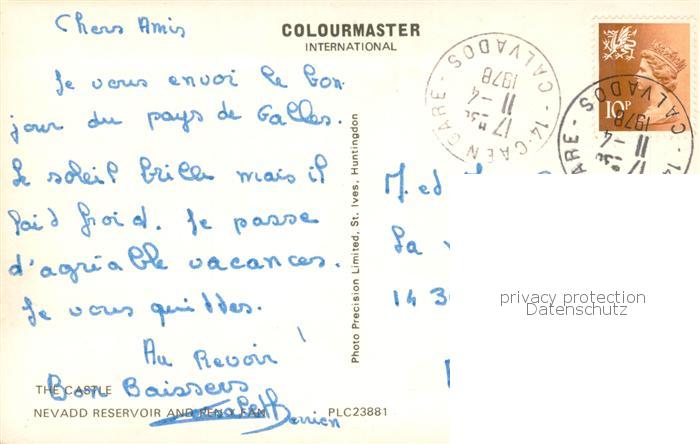 Chers Amis
COLOURMASTER
INTERNATIONAL
Je vous envoi le bon
jour du pays de Galles.
Le soleil brille mais il
fait froid. Je passe
d'agréable vacances.
Je vous quittes.
Au Revoir !
Bons Baisers
Derrien
THE CASTLE
NEVADD RESERVOIR AND PEN Y FAN
PLC23881
Photo Precision Limited, St. Ives, Huntingdon
14-CAEN GARE - CALVADOS
17 H
11-4
1978
14-CAEN GARE - CALVADOS
17 H
11-4
1978
10P
M. et
La
14 3
privacy protection
Datenschutz